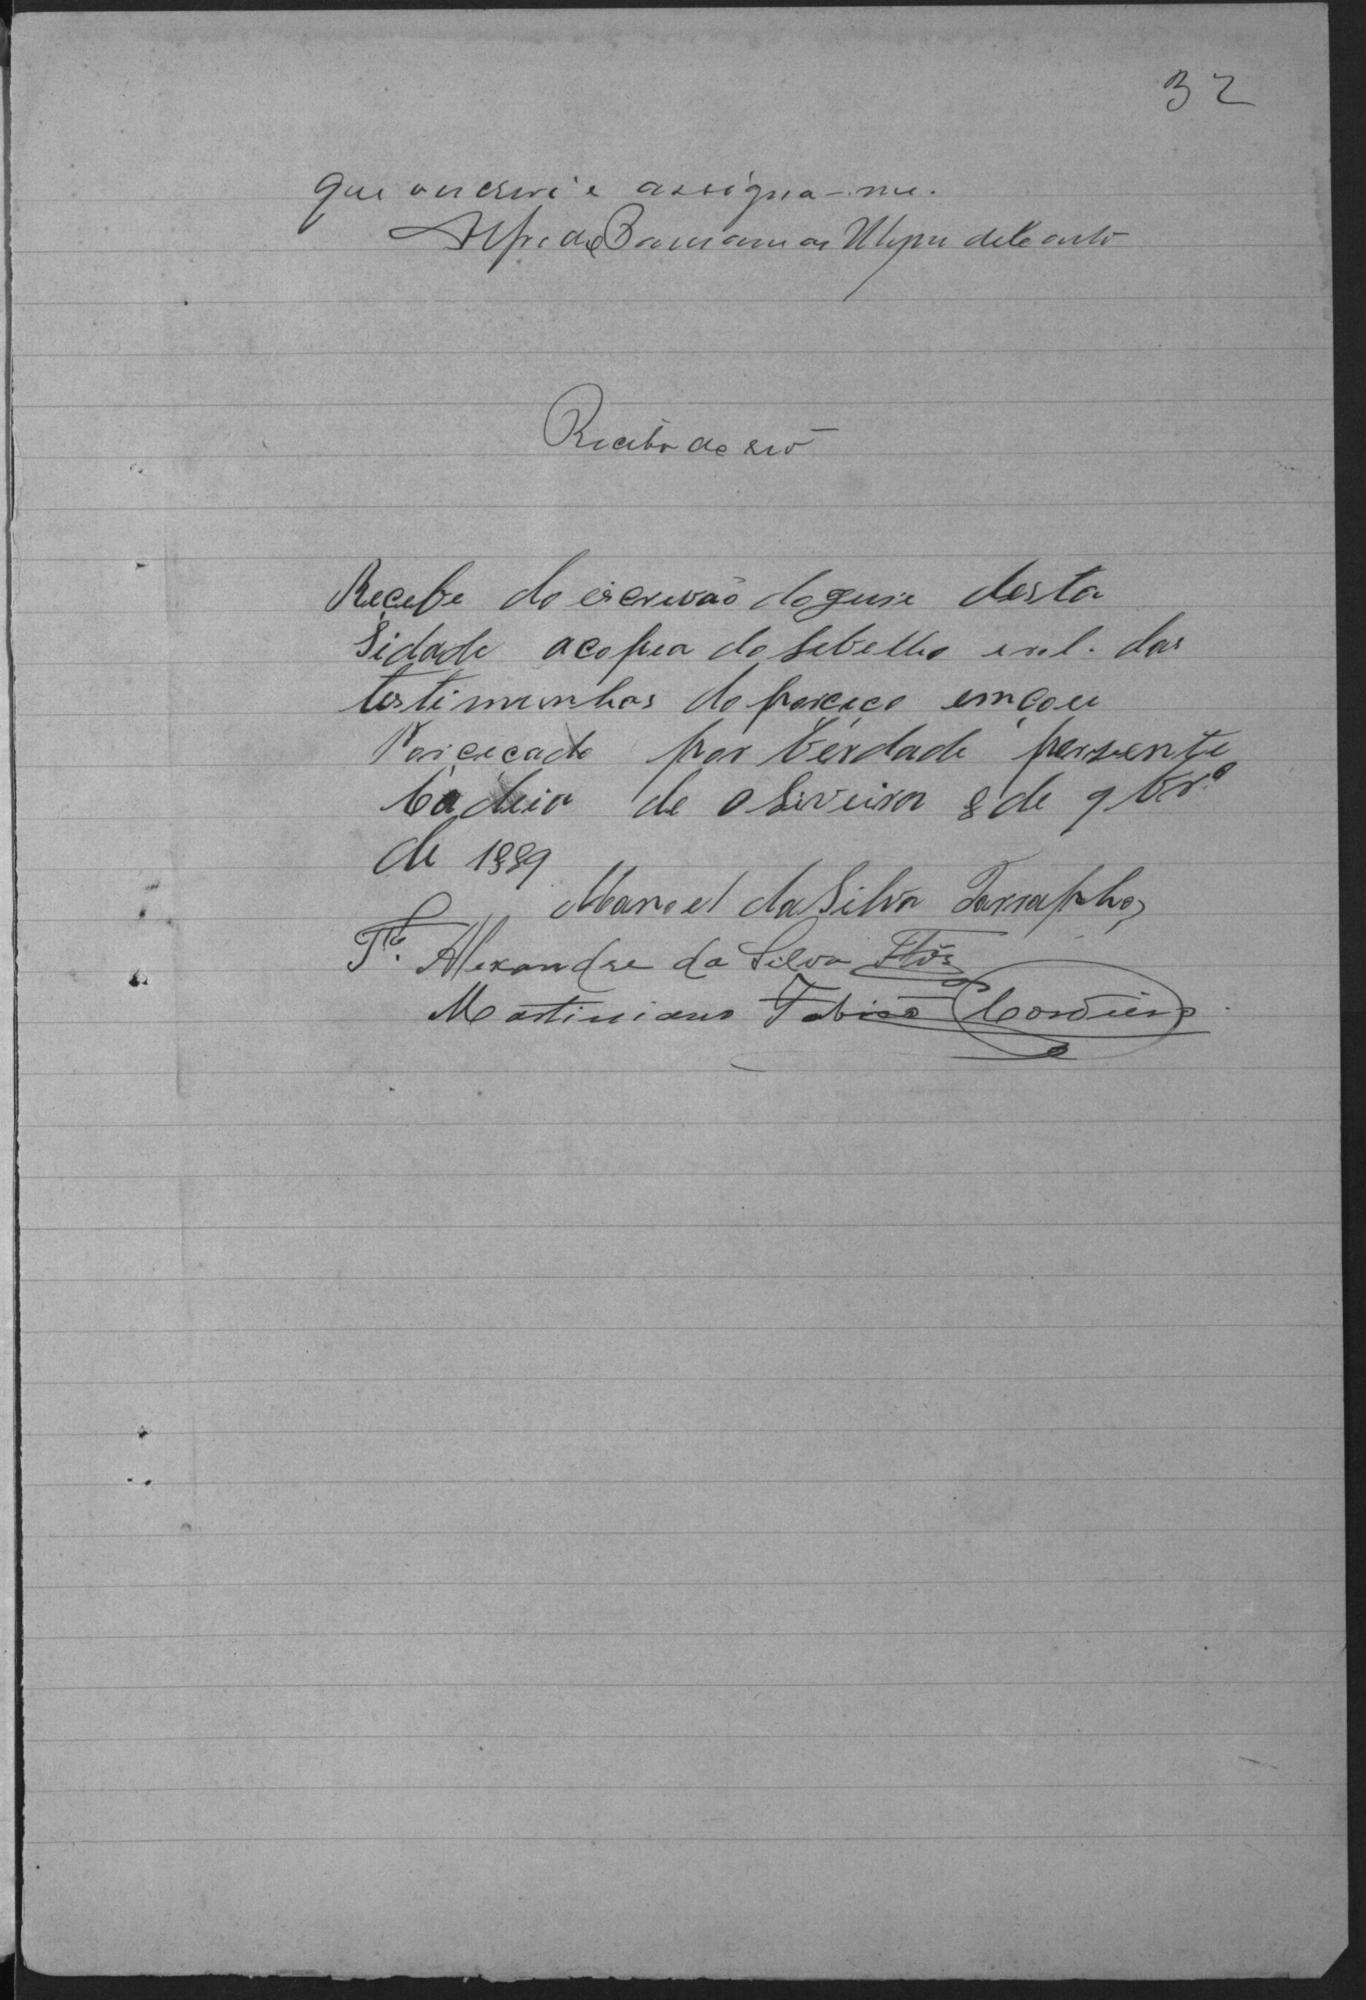 32
que o escrevi e assigna-me.
Alfredo de Castro
Recibo do réo
Recebe do escrivão do gure desta
Sidade acopea do libello e rol. das
testimunhas do porceço em que
Porcecado por Verdade persente
Cadeia de oliveira 8 de 9brº
de 1889
Manoel da Silva Farrapho,
Tª. Alexandre da Silva
Martiniano Fabião Cordeiro